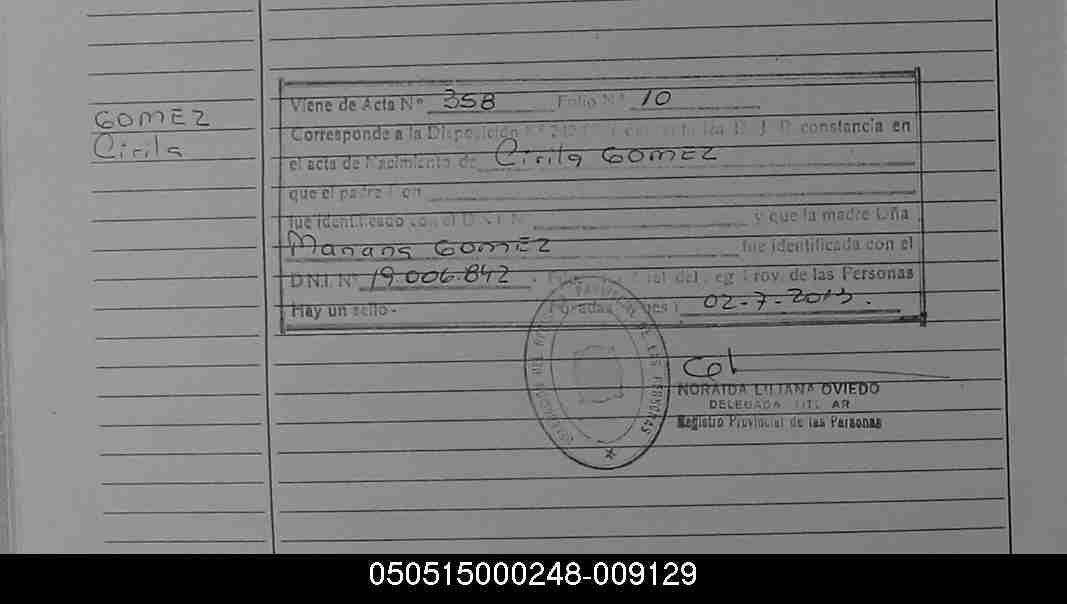 GOMEZ
Cirila
Viene de Acta Nº 358 Folio Nº 10
Corresponde a la Disposición constancia en
el acta de Nacimiento de Cirila GOMEZ
que el padre Don
fue identificado con el D.N.I. Nº y que la madre Dña
GOMEZ fue identificada con el
D.N.I. Nº 19.006.842 del Reg. Prov. de las Personas
Hay un sello.- Posadas, Mnes; 02-7-2013.
NORAIDA LILIANA OVIEDO
DELEGADA TITULAR
Registro Provincial de las Personas
PROVINCIAL DE LAS PERSONAS
050515000248-009129